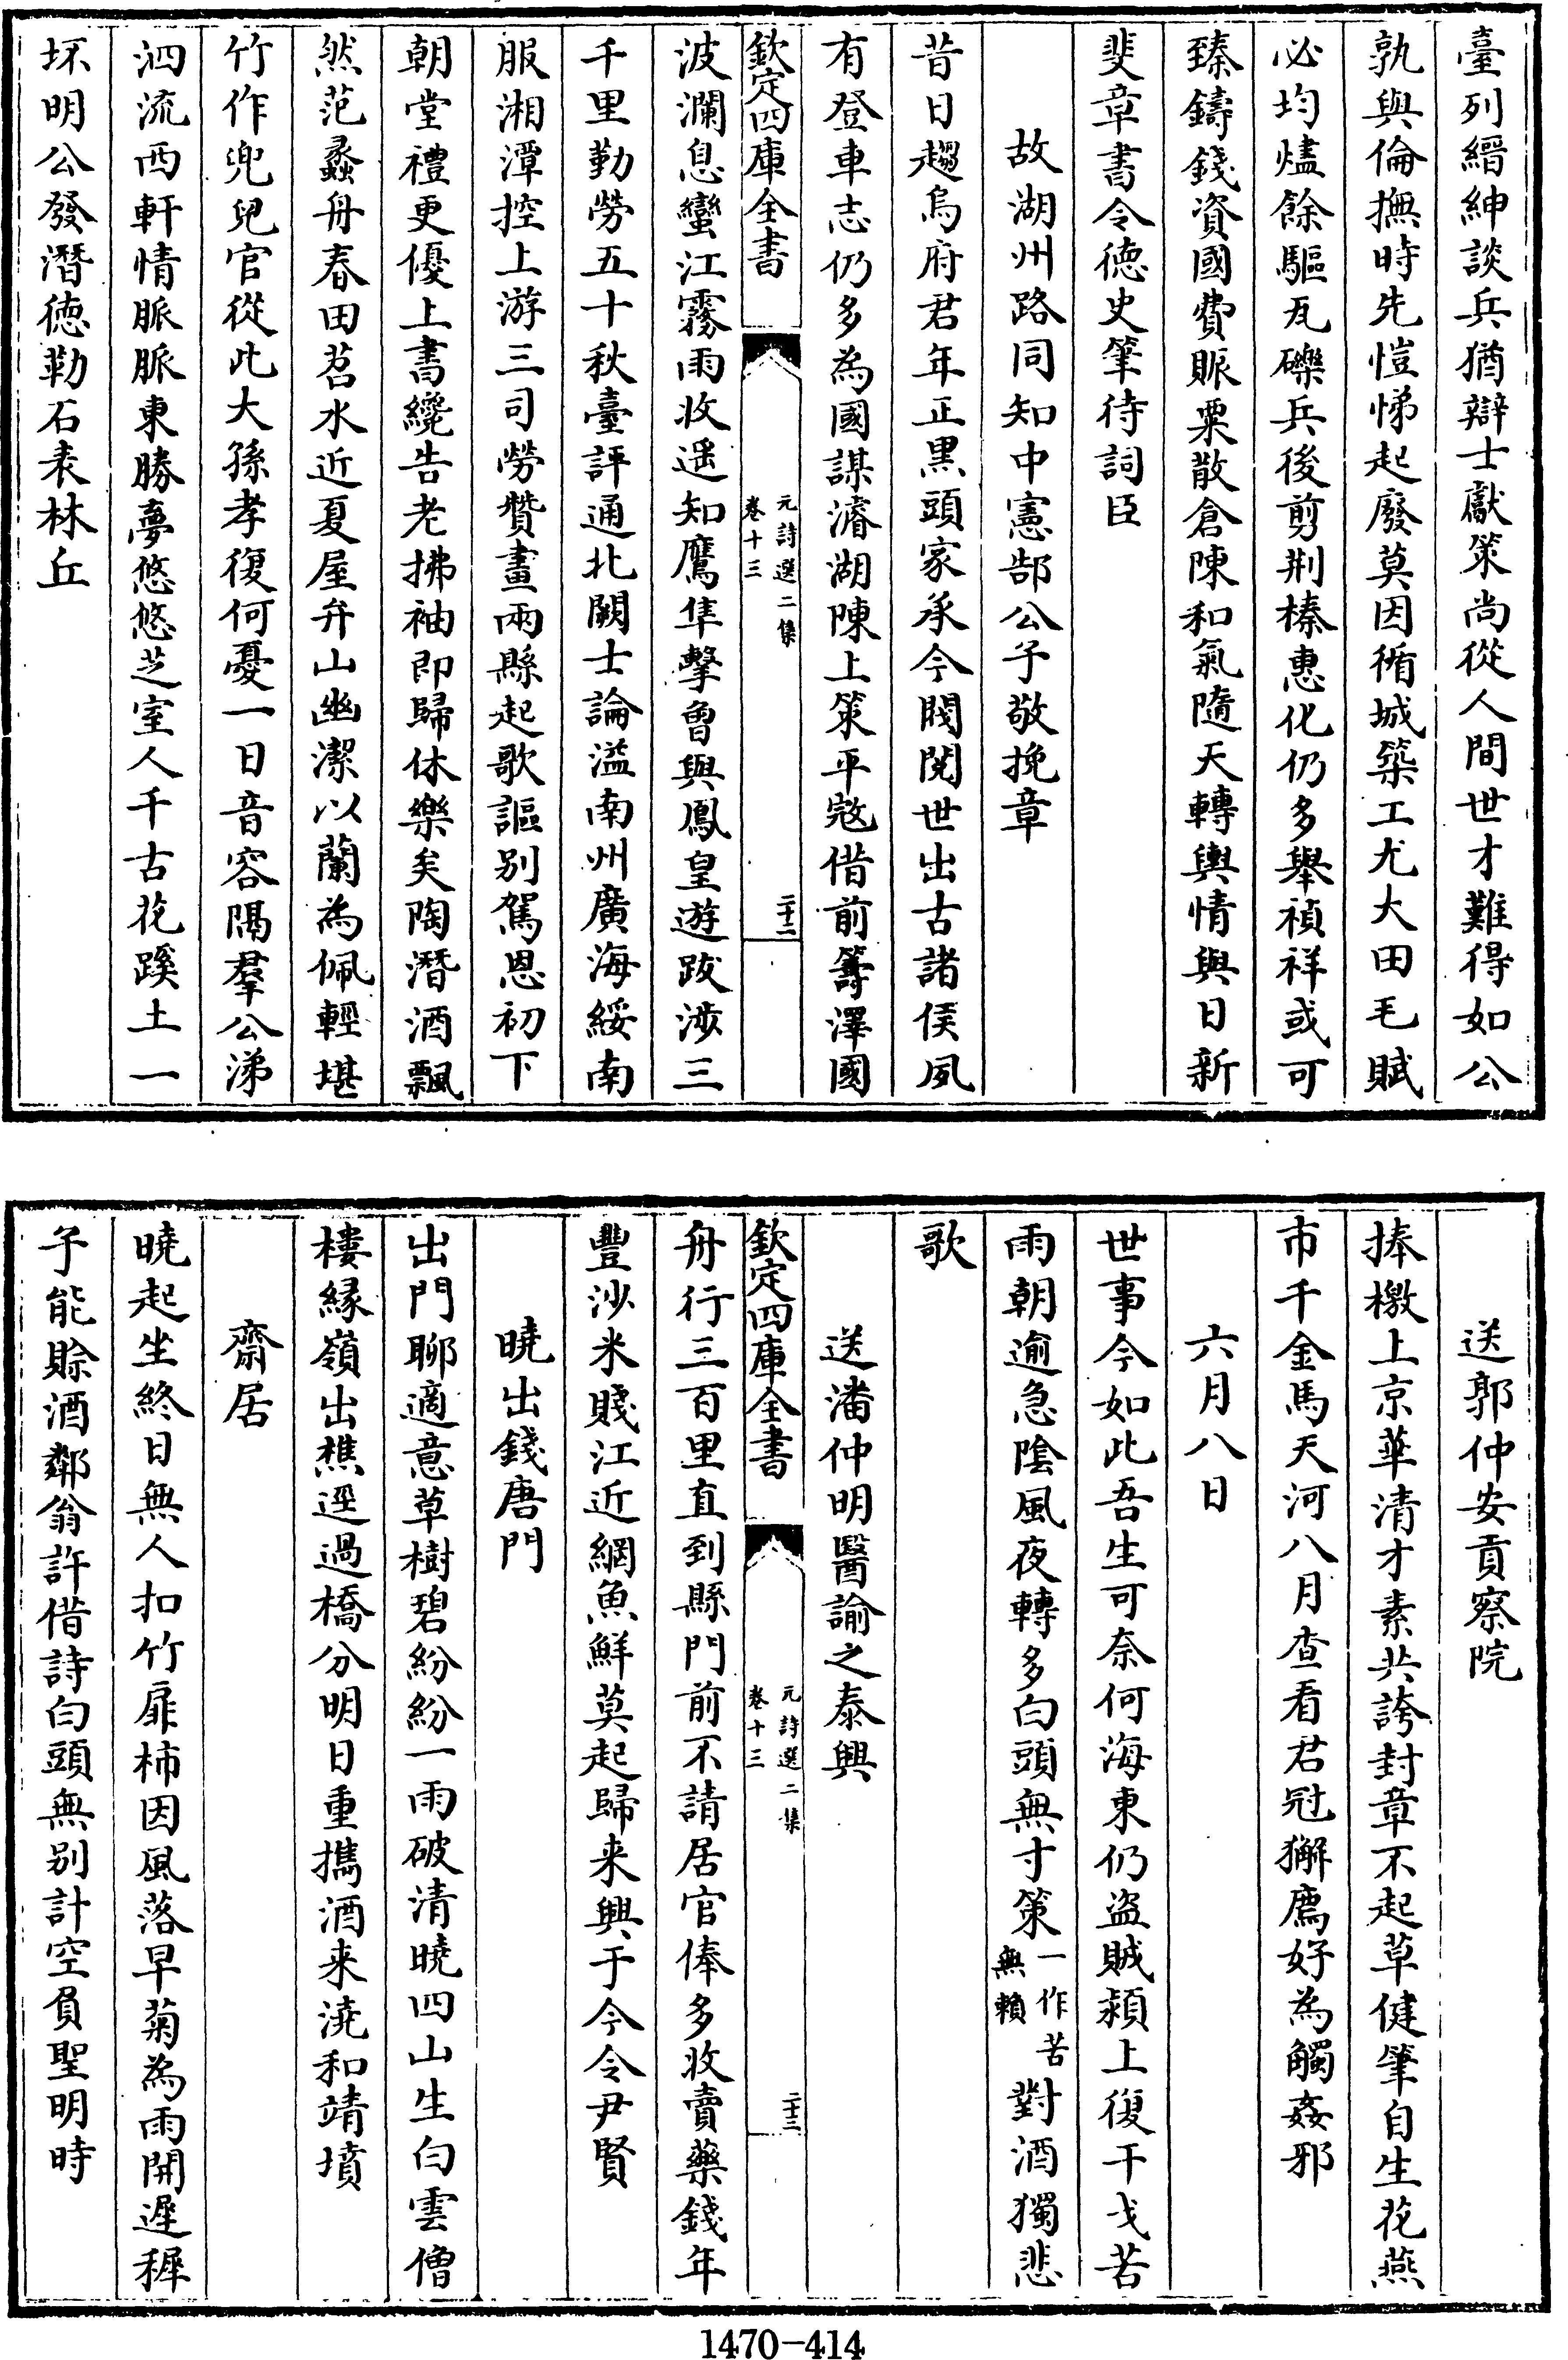 臺列縉紳談兵猶辯士獻策尚從人間世才難得如公
孰與倫撫時先愷悌起廢莫因循城築工尤大田毛賦
必均燼餘驅瓦礫兵後剪荆榛惠化仍多舉禎祥或可
臻鑄錢資國費賑粟散倉陳和氣隨天轉輿情與日新
斐章書令徳史筆待詞臣
故湖州路同知中憲郜公子敬挽章
昔日趨烏府君年正黒頭家承今閥閲世出古諸侯夙
有登車志仍多為國謀濬湖陳上策平宼借前籌澤國
欽定四庫全書
元詩選二集
卷十三
二十二
波瀾息蠻江霧雨收遥知鷹隼擊曾與鳳皇遊跋涉三
千里勤勞五十秋臺評通北闕士論溢南州廣海綏南
服湘潭控上游三司勞贊畫兩縣起歌謳别駕恩初下
朝堂禮更優上書纔告老拂袖即歸休樂矣陶潛酒飄
然范蠡舟春田苕水近夏屋弁山幽潔以蘭為佩輕堪
竹作兜兒官從此大孫孝復何憂一日音容隔羣公涕
泗流西軒情脈脈東勝夢悠悠芝室人千古花蹊土一
坏明公發潛徳勒石表林丘
送郭仲安貢察院
捧檄上京華清才素共誇封章不起草健筆自生花燕
市千金馬天河八月查看君冠獬廌好為觸姦邪
六月八日
世事今如此吾生可奈何海東仍盜賊潁上復干戈苦
雨朝逾急陰風夜轉多白頭無寸策一作苦無賴對酒獨悲
歌
送潘仲明醫諭之泰興
欽定四庫全書
元詩選二集
卷十三
二十三
舟行三百里直到縣門前不請居官俸多收賣藥錢年
豐沙米賤江近網魚鮮莫起歸来興于今令尹賢
曉出錢唐門
出門聊適意草樹碧紛紛一雨破清曉四山生白雲僧
樓緣嶺出樵逕過橋分明日重攜酒来澆和靖墳
齋居
曉起坐終日無人扣竹扉柿因風落早菊為雨開遲穉
子能賒酒鄰翁許借詩白頭無别計空負聖明時
1470-414